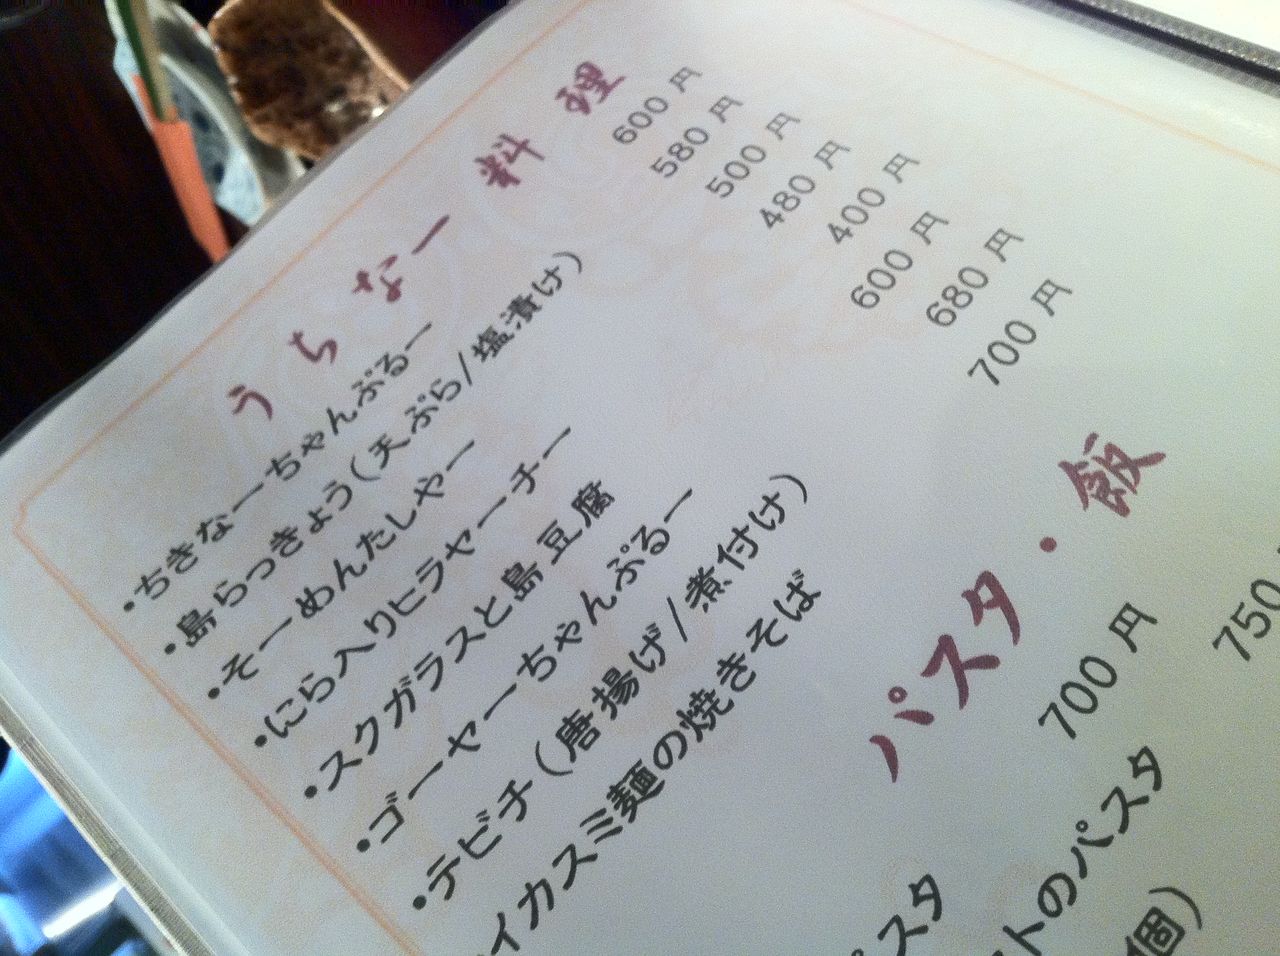 うちなー料理
・ちきなーちゃんぷるー 600 円
・島らっきょう(天ぷら/塩漬け) 580 円
・そーめんたしやー 500 円
・にら入りヒラヤーチー 480 円
・スクガラスと島豆腐 400 円
・ゴーヤーちゃんぷるー 600 円
・テビチ(唐揚げ/煮付け) 680 円
イカスミ麺の焼きそば 700 円
パスタ・飯
パスタ 700 円
トのパスタ 750
個)